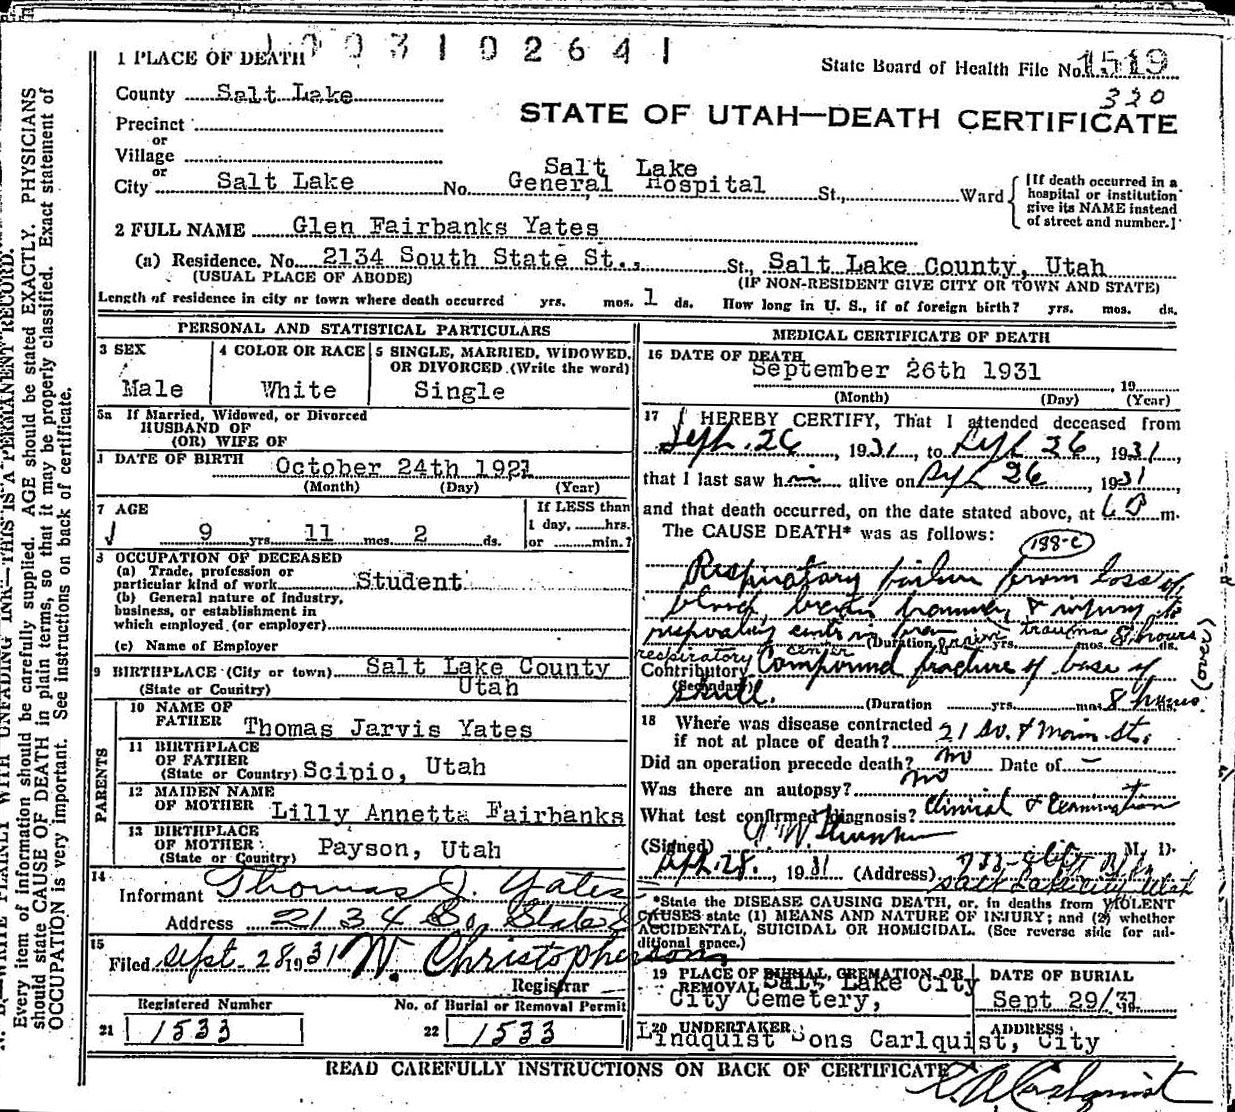 1 0 0 3 1 0 2 6 4 1
1 PLACE OF DEATH
State Board of Health File No. 1519
320
County Salt Lake
STATE OF UTAH—DEATH CERTIFICATE
Precinct
or
Village
or
City Salt Lake No. Salt Lake General Hospital St., Ward
[If death occurred in a hospital or institution give its NAME instead of street and number.]
2 FULL NAME Glen Fairbanks Yates
(a) Residence. No. 2134 South State St., St., Salt Lake County, Utah
(USUAL PLACE OF ABODE) (IF NON-RESIDENT GIVE CITY OR TOWN AND STATE)
Length of residence in city or town where death occurred yrs. mos. 1 ds. How long in U. S., if of foreign birth? yrs. mos. ds.
PERSONAL AND STATISTICAL PARTICULARS
3 SEX
Male
4 COLOR OR RACE
White
5 SINGLE, MARRIED, WIDOWED, OR DIVORCED (Write the word)
Single
5a If Married, Widowed, or Divorced
HUSBAND OF
(OR) WIFE OF
DATE OF BIRTH October 24th 1921
(Month) (Day) (Year)
7 AGE
9 yrs. 11 mos. 2 ds.
If LESS than 1 day, hrs. or min.?
8 OCCUPATION OF DECEASED
(a) Trade, profession or particular kind of work Student
(b) General nature of industry, business, or establishment in which employed (or employer)
(c) Name of Employer
9 BIRTHPLACE (City or town) Salt Lake County
(State or Country) Utah
PARENTS
10 NAME OF FATHER Thomas Jarvis Yates
11 BIRTHPLACE OF FATHER (State or Country) Scipio, Utah
12 MAIDEN NAME OF MOTHER Lilly Annetta Fairbanks
13 BIRTHPLACE OF MOTHER (State or Country) Payson, Utah
14
Informant Thomas J. Yates
Address 2134 So. State
15
Filed Sept. 28 1931 W. Christopherson
Registrar
Registered Number
21 1533
No. of Burial or Removal Permit
22 1533
MEDICAL CERTIFICATE OF DEATH
16 DATE OF DEATH
September 26th 1931, 19
(Month) (Day) (Year)
17 I HEREBY CERTIFY, That I attended deceased from
Sept. 26, 1931, to Sept 26, 1931,
that I last saw him alive on Sept 26, 1931
and that death occurred, on the date stated above, at 6 P m.
The CAUSE DEATH* was as follows:
188-c
Respiratory failure from loss of
blood, brain trauma & injury to
respiratory center in brain (Duration yrs. mos. 8 hours ds.
brain trauma
respiratory center
(over)
Contributory Compound fracture of base of
(Secondary) skull.
(Duration yrs. mos. 8 hours ds.
18 Where was disease contracted if not at place of death? 21 So. & Main St.
Did an operation precede death? no Date of –
Was there an autopsy? no
What test confirmed diagnosis? Clinical & Examination
(Signed) M. D.
Sept. 28, 1931 (Address)
Salt Lake City Utah
*State the DISEASE CAUSING DEATH, or, in deaths from VIOLENT
CAUSES state (1) MEANS AND NATURE OF INJURY; and (2) whether
ACCIDENTAL, SUICIDAL OR HOMICIDAL. (See reverse side for additional space.)
19 PLACE OF BURIAL, CREMATION, OR REMOVAL Salt Lake City
City Cemetery,
DATE OF BURIAL
Sept 29/31
20 UNDERTAKER
ADDRESS
Lindquist Sons Carlquist, City
READ CAREFULLY INSTRUCTIONS ON BACK OF CERTIFICATE
N. B.—WRITE PLAINLY WITH UNFADING INK—THIS IS A PERMANENT RECORD.
Every item of information should be carefully supplied. AGE should be stated EXACTLY. PHYSICIANS
should state CAUSE OF DEATH in plain terms, so that it may be properly classified. Exact statement of
OCCUPATION is very important. See instructions on back of certificate.